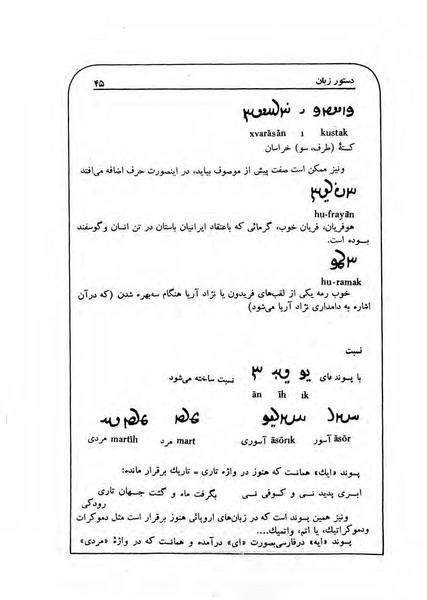 دستور زبان ۴۵
xvarāsān ı kustak
کستهٔ (طرف، سو) خراسان
ونیز ممکن است صفت پیش از موصوف بیاید، در اینصورت حرف اضافه می‌افتد
hu-frayān
هوفریان، فریان خوب، گرمائی که باعتقاد ایرانیان باستان در تن انسان و گوسفند
بوده است.
hu-ramak
خوب رمه یکی از لقب‌های فریدون یا نژاد آریا هنگام سه‌بهره شدن (که در آن
اشاره به دامداری نژاد آریا می‌شود)
نسبت
با پسوندهای نسبت ساخته می‌شود
ān īh ık
āsōr آسور āsōrık آسوری mart مرد martīh مردی
پسوند «ایك» همانست که هنوز در واژه تاری = تاریك برقرار مانده:
ابری پدید نسی و کسوفی نسی بگرفت ماه و گشت جهان تاری
رودکی
ونیز همین پسوند است که در زبان‌های اروپائی هنوز برقرار است مثل دموکرات
ودموکراتیك، یا اتم، واتمیك....
پسوند «ایه» درفارسی‌بصورت «ای» درآمده و همانست که در واژهٔ «مردی»